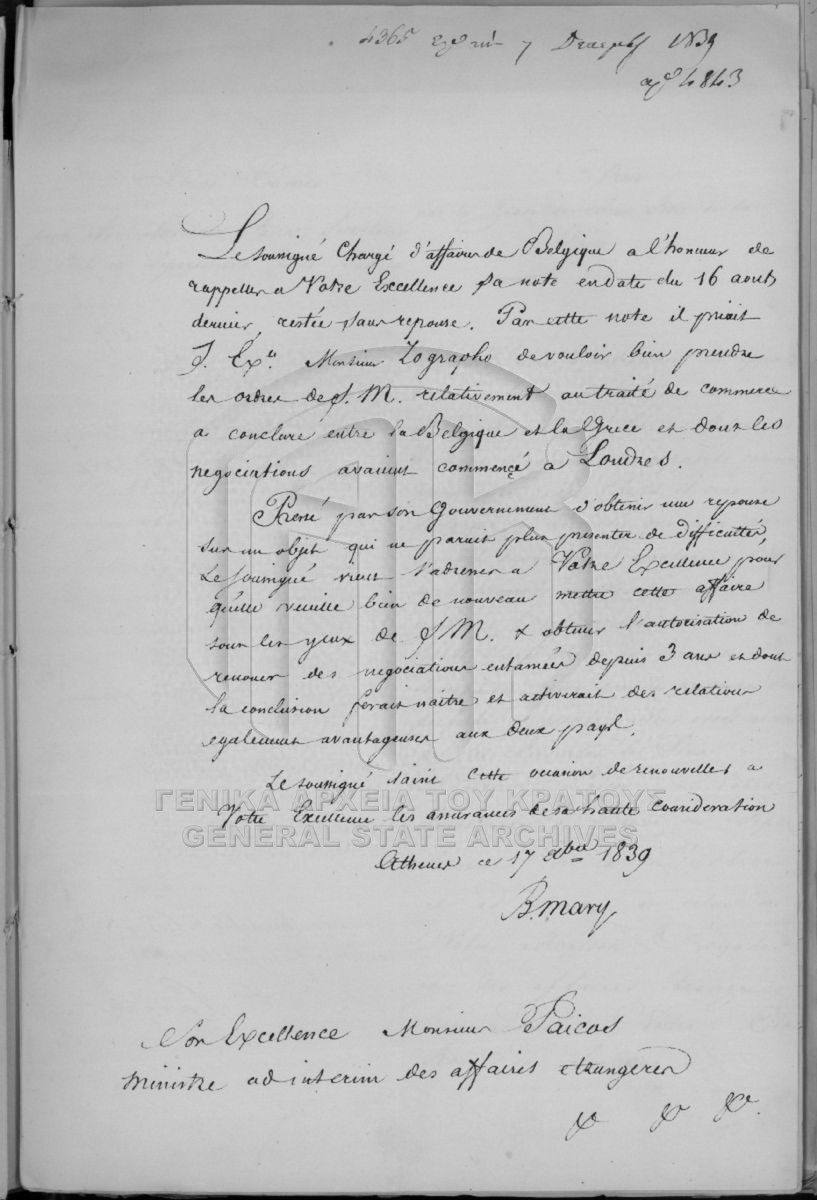 4365 7 1839
4843
Le soussigné Chargé d'affaires de Belgique a l'honneur de
rappeller a Votre Excellence Sa note en date du 16 aout
dernier, restée sans reponse. Par cette note il priait
S. Ex. Monsieur Zographo de vouloir bien prendre
les ordres de S. M. relativement au traité de commerce
a conclure entre la Belgique et la Grece et dont les
negociations avaient commencé a Londres.
Pressé par son Gouvernement d'obtenir une reponse
sur un objet qui ne parait plus presenter de difficulté,
Le soussigné vient s'adresser a Votre Excellence pour
qu'elle veuille bien de nouveau mettre cette affaire
sous les yeux de S M. & obtenir l'autorisation de
renouer des negociations entamées depuis 3 ans et dont
la conclusion ferait naitre et activerait des relations
egalement avantageuses aux deux pays.
Le soussigné saisit cette occasion de renouveller a
ΓΕΝΙΚΑ ΑΡΧΕΙΑ ΤΟΥ ΚΡΑΤΟΥΣ
Votre Excellence les assurances de sa haute consideration
GENERAL STATE ARCHIVES
Athenes ce 17 Xbre 1839
B. Mary
Son Excellence Monsieur Païcos
Ministre ad interim des affaires etrangeres
& & &.